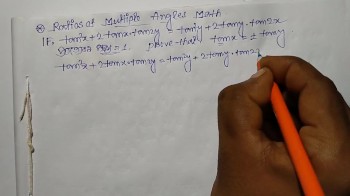 Ratios of Multiple Angles Math
If. tan²x + 2 tanx·tan2y = tan²y + 2 tany·tan2x
= 1. prove that tanx ± tany
tan²x + 2 tanx·tan2y = tan²y + 2 tany·tan2